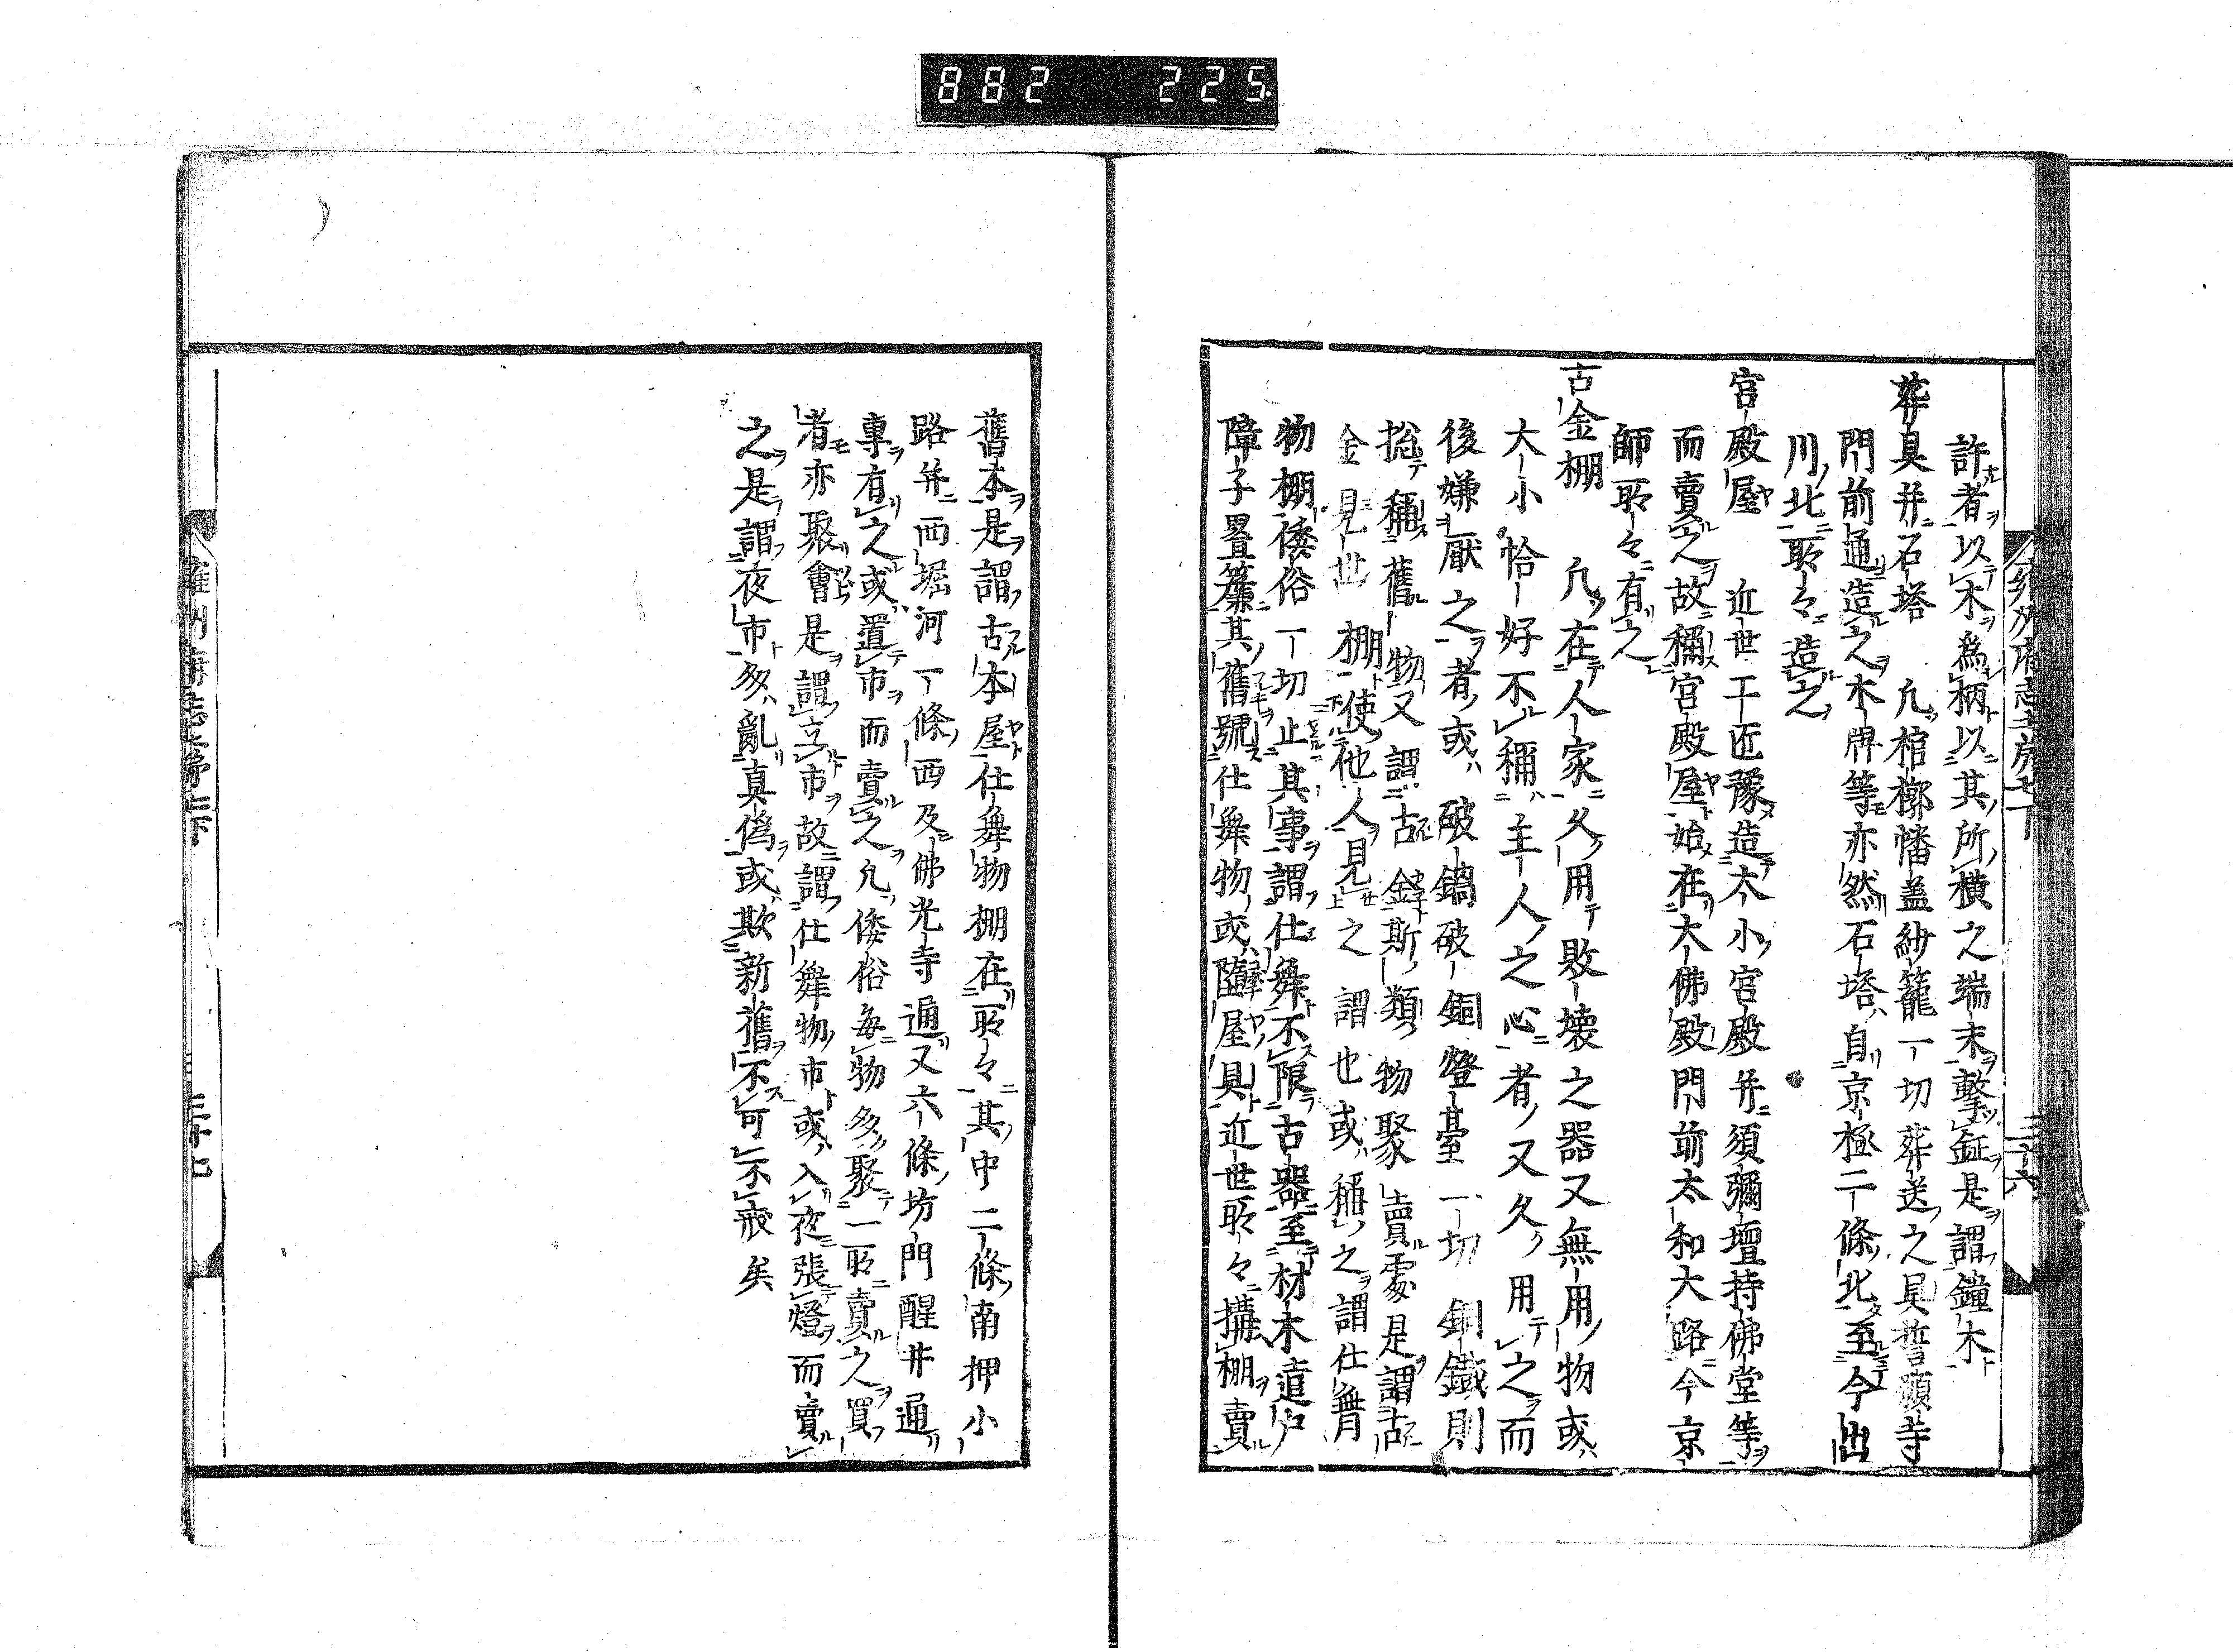 882 225
許者以木為柄以其所横之端末撃鉦是謂鐘木
葬具并石塔 凢棺槨幡盖紗籠一切葬送之具誓願寺
門前通造之木牌等亦然石塔自京極二條北至今出
川北耴々造之
宮殿屋 近世工匠豫造大小宮殿并須彌壇持佛堂等
而賣之故稱宮殿屋始在大佛殿門前大和大路今京
師耴々有之
古金棚 凢在人家久用敗壊之器又無用物或
大小恰好不稱主人之心者又久用之而
後嫌厭之者或破鍋破銅燈臺一切銅鐵則
捴稱舊物又謂古 斯類物聚賣處是謂古
金見世棚使他人見之謂也或稱之謂仕舞
物棚倭俗一切止其事謂仕舞不限古器至材木遣戸
障子畳簾其舊號仕舞物或隨屋具近世耴々搆棚賣
舊本是謂古本屋仕舞物棚在耴々其中二條南押小
路并西堀河一條西及佛光寺通又六條坊門醒井通
專有之或置市而賣之凢倭俗毎物多聚一耴賣之買
者亦聚會是謂立市故謂仕舞物市或入夜張燈而賣
之是謂夜市多亂真偽或欺新舊不可不戒矣
三十七